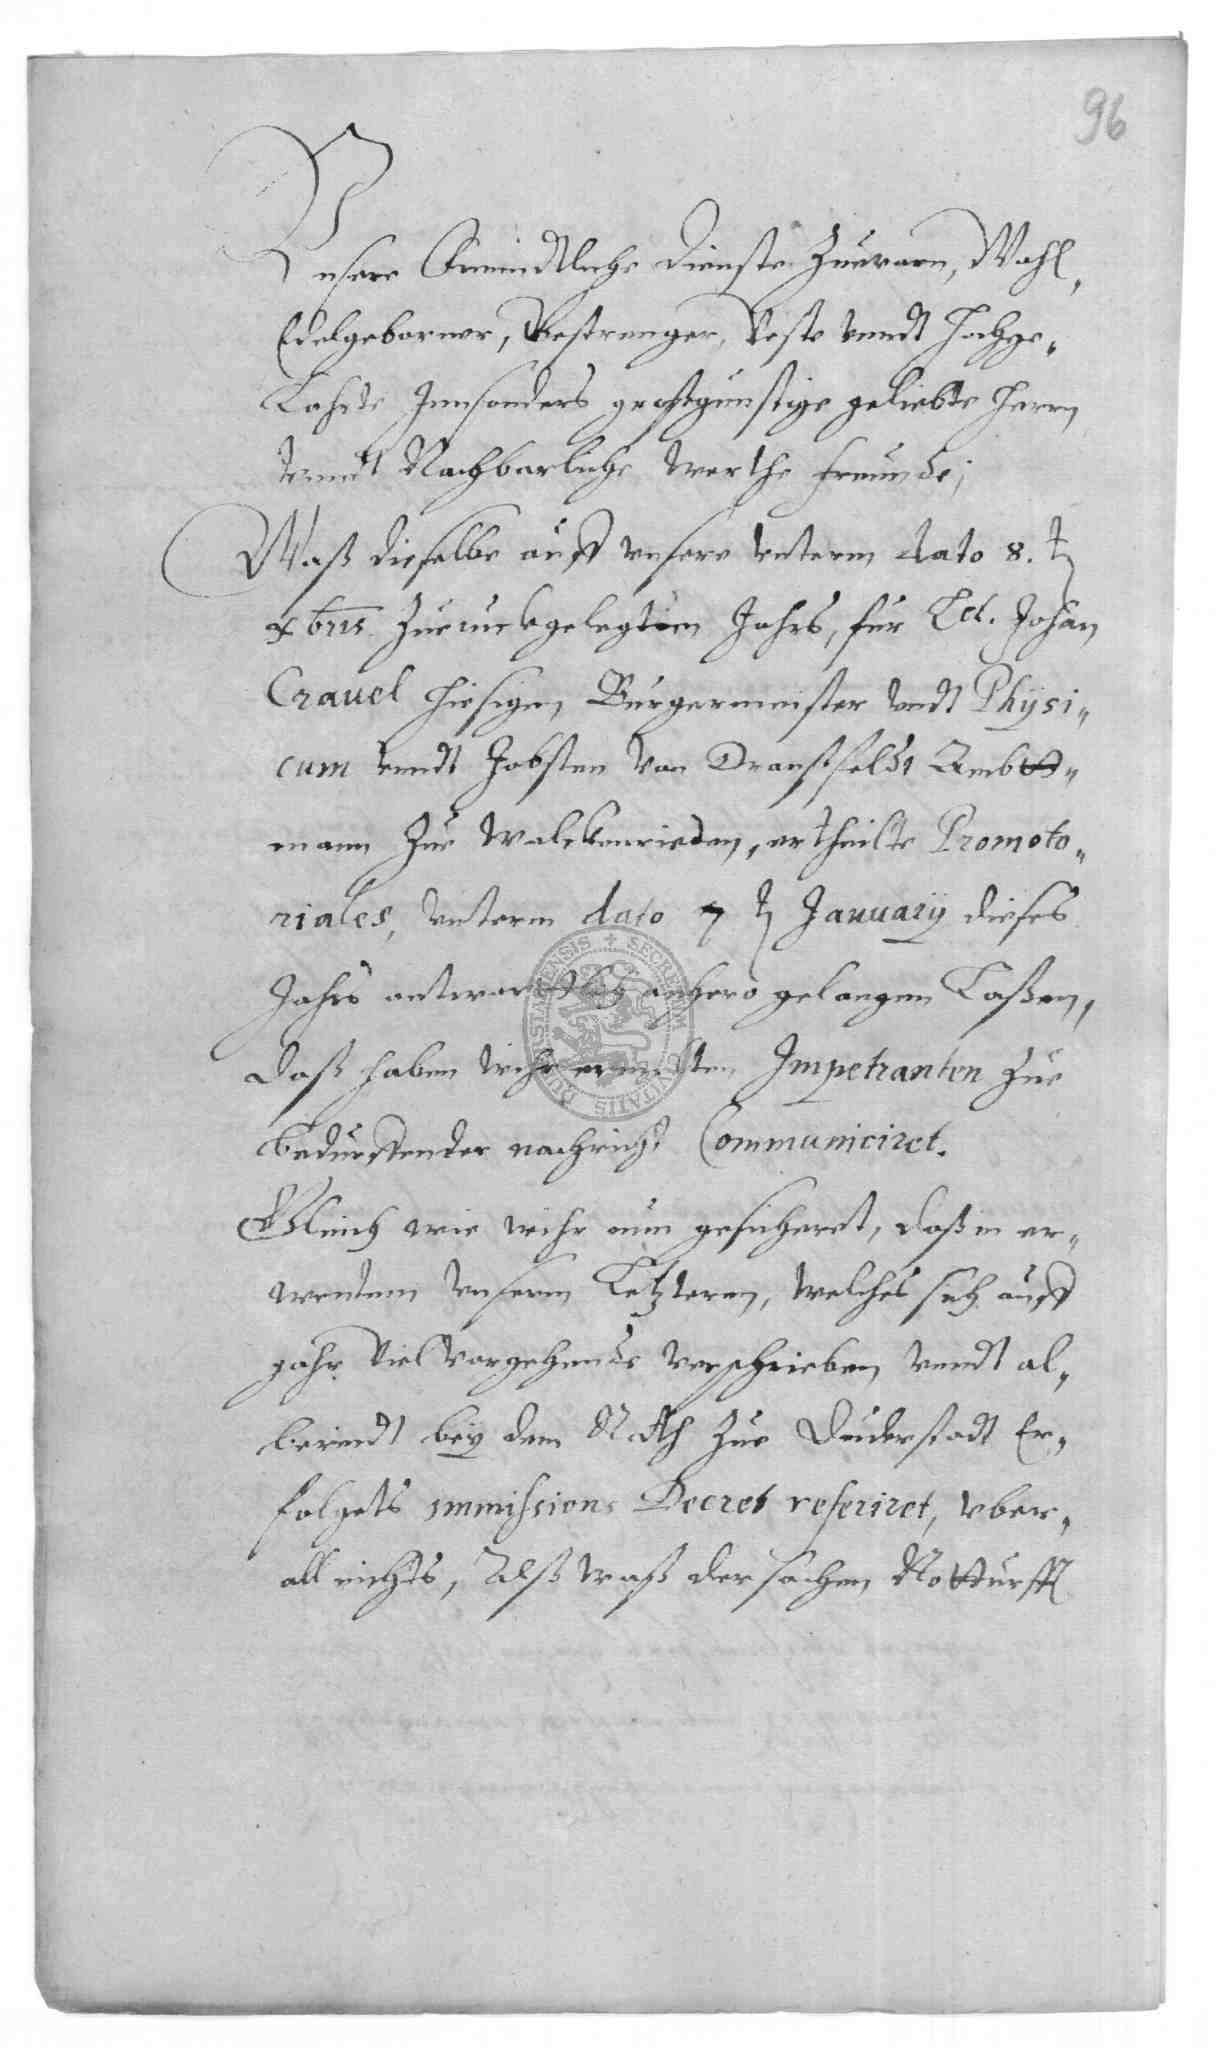 96
Unsere Freundtliche Dienste Zuevorn, Wohl„
Edelgeborner, Gestrenger, Veste vndt Hochge„
Lahrte Innsonders großgünstige geliebte Herrn
vndt Nachbarliche werthe Freunde;
Waß dieselbe auff vnsere vnterm dato 8.t
xbris Zuerurckgelegten Jahrs, für Lct. Johan
Crauel hiesigen Burgermeister vndt Physi„
cum vndt Jobsten von Dransfeldt Ambtt„
mann Zue Walckenrieden, ertheilte Promoto„
riales, vnterm dato 7 t January dieses
Jahrs antwortlich anhero gelangen Laßen,
daß haben wihr ermelten Impetranten Zue
bedurffender nachricht Communiciret.
Gleich wie wihr nun gesicheret, daß in er„
wentem vnserm Letzterem, welches sich auff
gahr viel vorgehende verschrieben vndt al„
bereidt beÿ dem Rath Zue Duderstadt Er„
folgets immissions Decret referiret, vber„
all nichts, Alß waß der sachen Notturfft
DUDERSTADENSIS + SECRETUM CIVITATIS